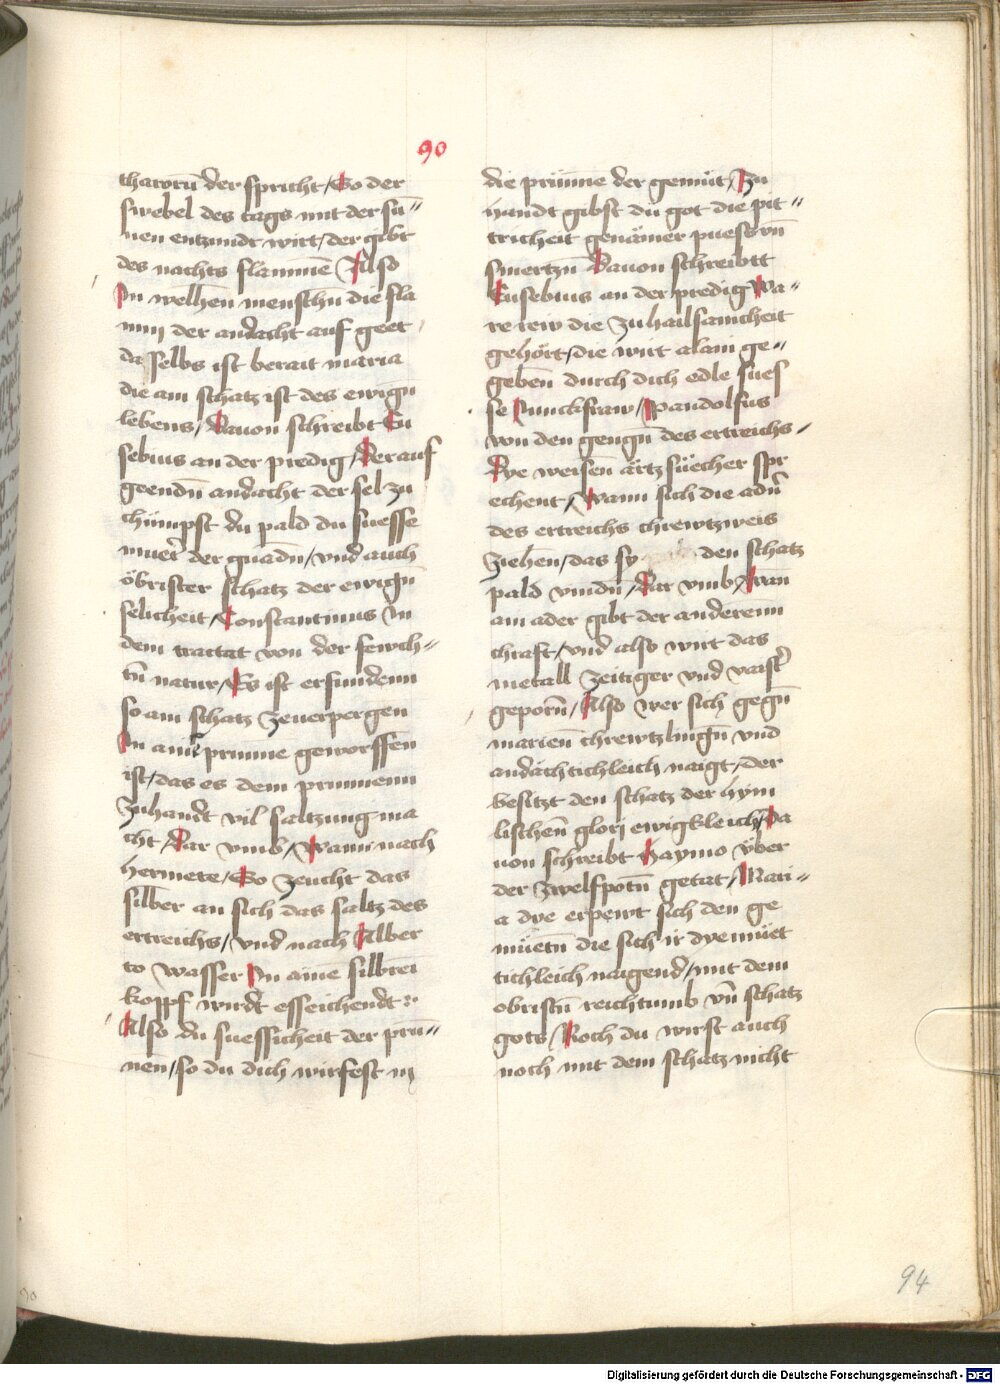 90
tharorū der spricht / So der
swebel des tags mit der su„
nen entzundt wirt / der gibt
des nachts flammē Also
In welhen menschn die fla
mm der andacht auf geet
da selbs ist berait maria
die am schatz ist des ewign
lebens / Dauon schreibt Eu
sebius an der predig / Der auf
geendn andacht der sel zu
chumpst du pald du suesse
mueter der gnadn / vnd auch
öbrister schatz der ewign
selicheit / Constantinus In
dem tractat von der fewch„
tn natur / Es ist erfundenn
so am schatz zeuerpergen
In ains prunne geworffen
ist / das es dem prunnenn
zuhandt vil saltzung ma
cht / Dar vmb / Wann nach
hermete / So zeucht das
silber an sich das saltz des
ertreichs / vnd nach Alber
to wasser In aine silbrei
kopff wirdt esseichendt :
Also du suessicheit der prū„
nen / so du dich wirfest in
die prünne der gemüt / Zu
handt gibst du got die pit„
tricheit genämer puess vn
smertzn Dauon schreibtt
Eusebius an der predig Wa„
re rew die zu hailsamcheit
gehört / die wirt alain ge„
geben durch dich edle sues
se Junckfraw / Pandolfus
von den gengn des ertreichs
Dye weisen ärtz süecher spr
echent / Wann sich die adn
des ertreichs chrewtzweis
ziehen / das sy den schatz
pald vindn / Dar vmb / Wan
am ader gibt der anderenn
chraft / vnd also wirt das
metall zeitiger vnd vaist
geporn / Also wer sich gegn
marien chrewtzlingn vnd
andächtichleich naigt / der
besitzt den schatz der hym
lischen glori ewigkleich / Da
uon schreibt Haymo über
der zwelfpotn getat / Mari„
a dye erpewt sich den ge
müetn die sich ir dyemüet
tichleich naigend / mit dem
obristn reichtumb vn schatz
gots / Noch du wirst auch
noch mit dem schatz nicht
94
Digitalisierung gefördert durch die Deutsche Forschungsgemeinschaft - DFG